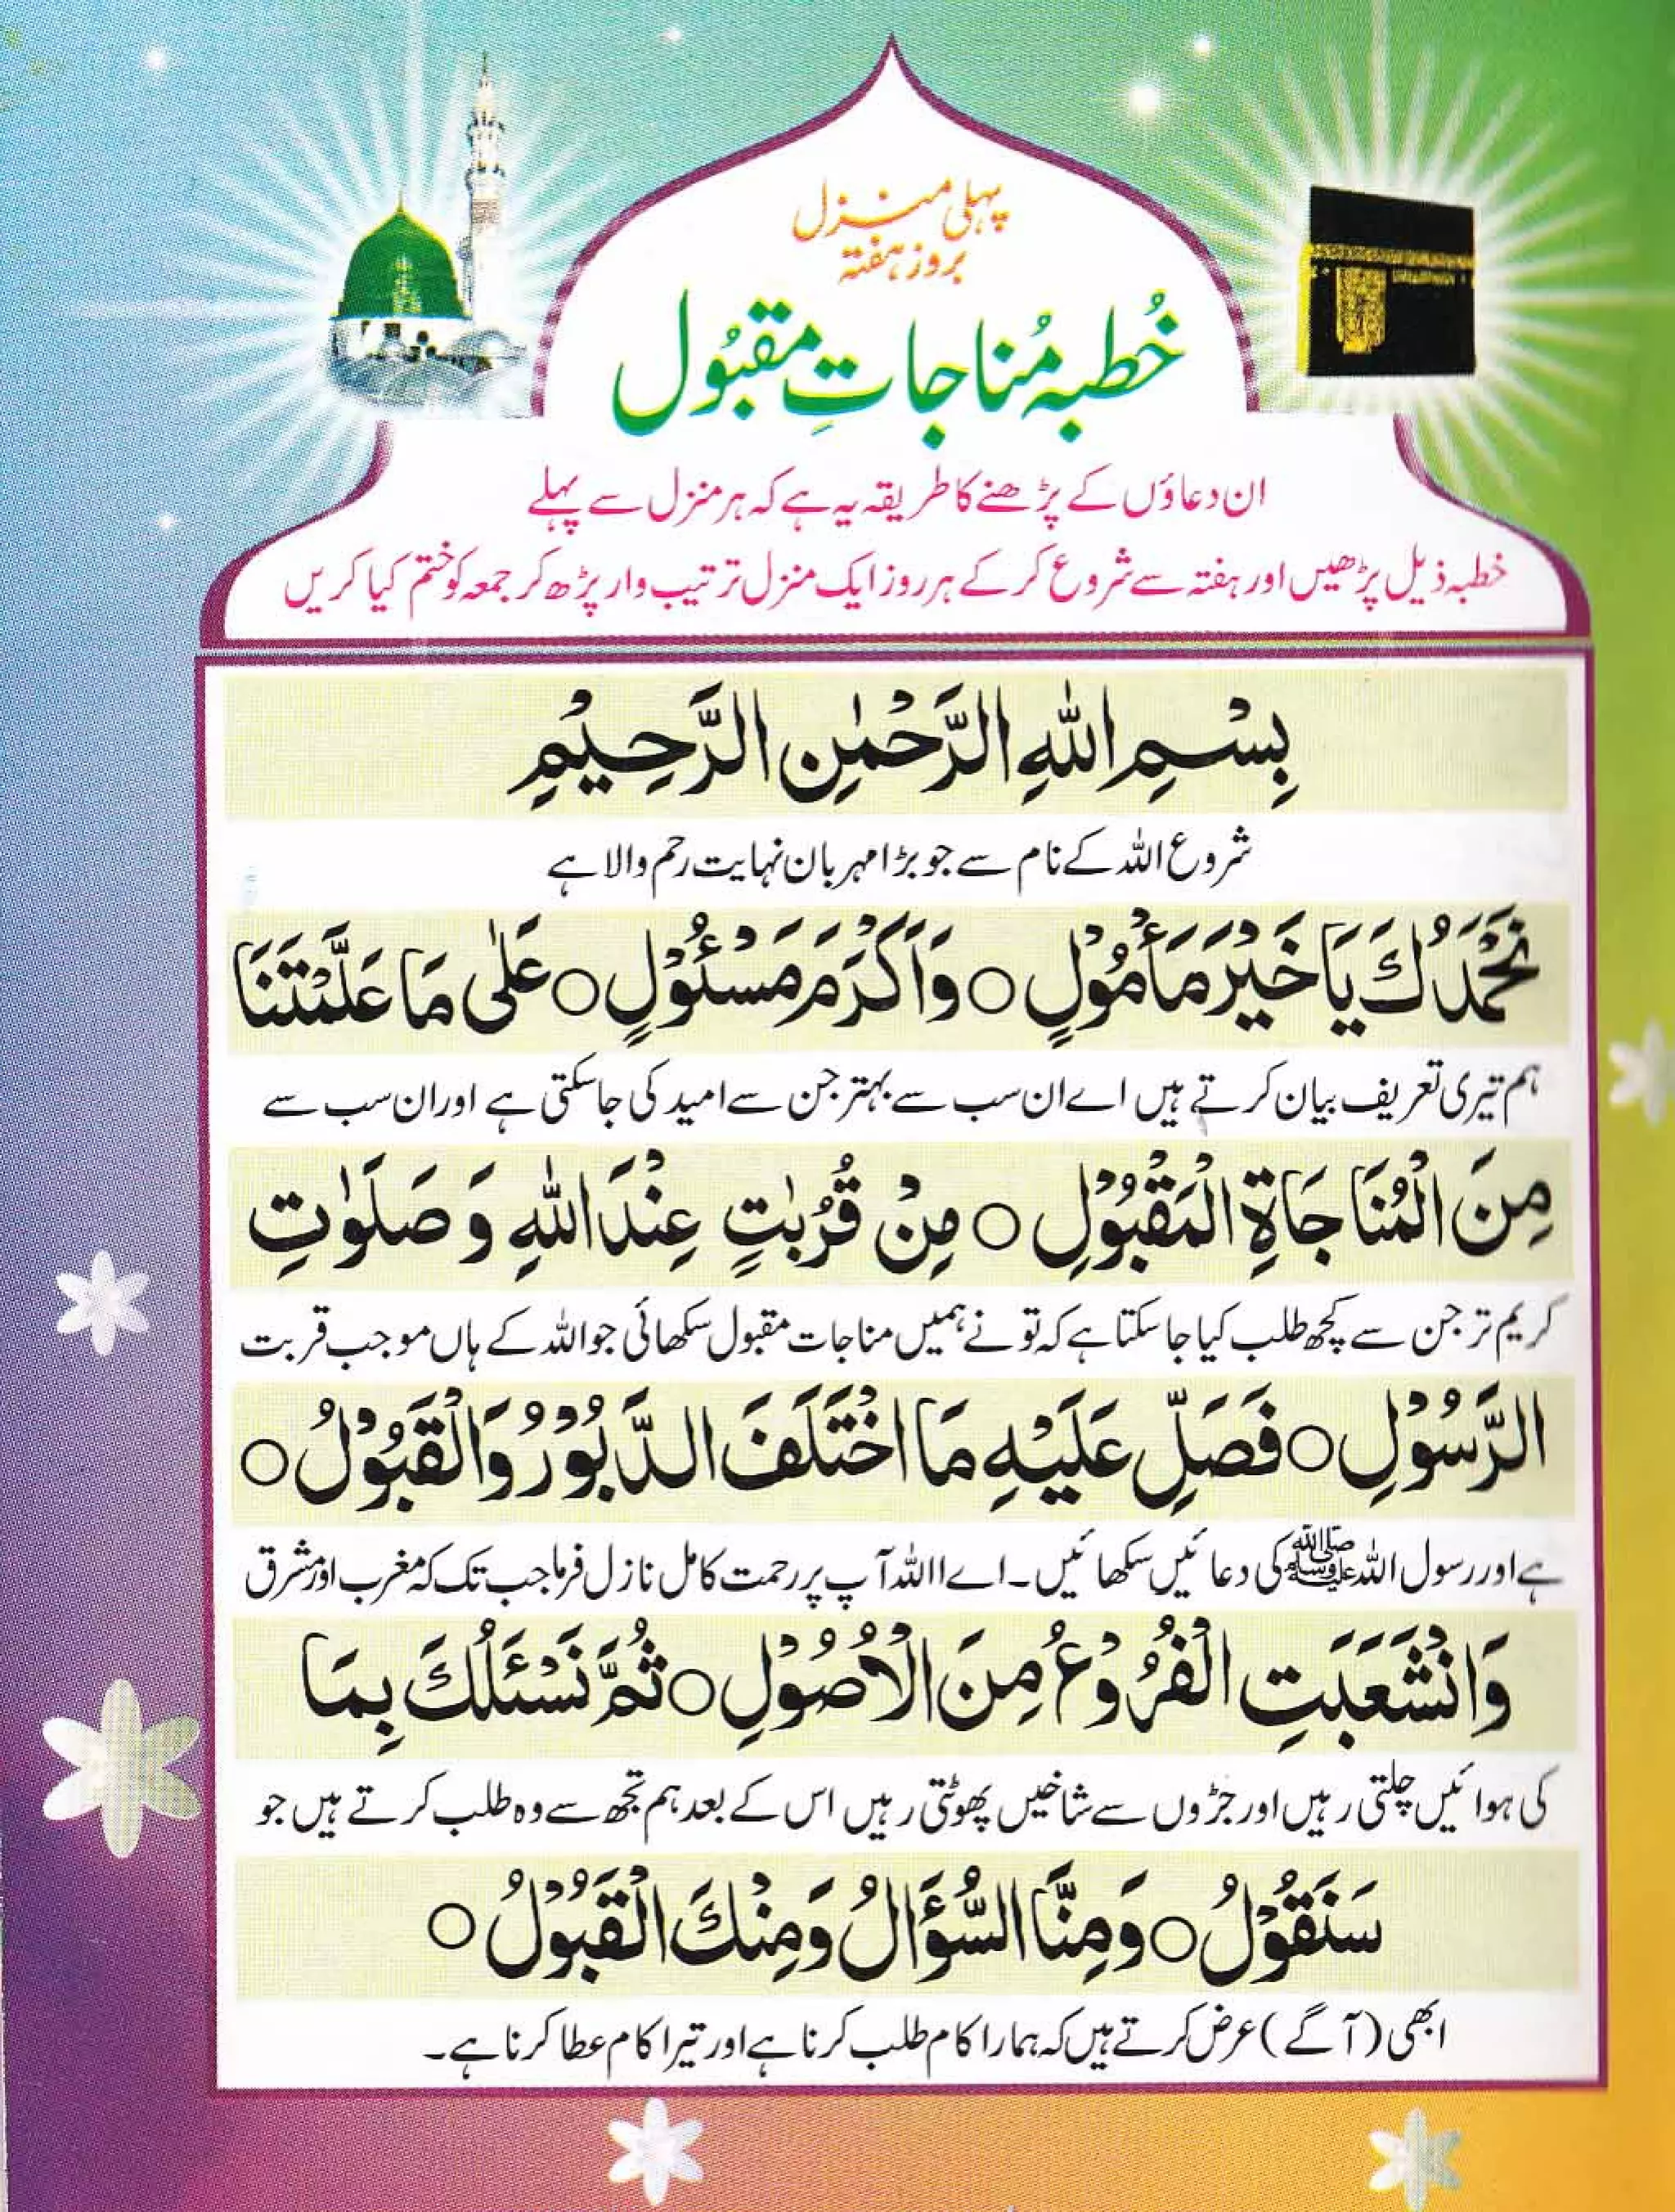 پہلی منزل
بروز ہفتہ
خُطبہ مُناجاتِ مقبُول
ان دعاؤں کے پڑھنے کا طریقہ یہ ہے کہ ہر منزل سے پہلے
خطبہ ذیل پڑھیں اور ہفتہ سے شروع کر کے ہر روز ایک منزل ترتیب وار پڑھ کر جمعہ کو ختم کیا کریں
بِسْمِ اللّٰهِ الرَّحْمٰنِ الرَّحِيْمِ
شروع اللہ کے نام سے جو بڑا مہربان نہایت رحم والا ہے
نَحْمَدُكَ يَا خَيْرَ مَأْمُوْلٍ ○ وَاَكْرَمَ مَسْئُوْلٍ ○ عَلٰى مَا عَلَّمْتَنَا
ہم تیری تعریف بیان کرتے ہیں اے ان سب سے بہتر جن سے امید کی جاسکتی ہے اور ان سب سے
مِنَ الْمُنَاجَاةِ الْمَقْبُوْلِ ○ مِنْ قُرُبٰتٍ عِنْدَ اللّٰهِ وَ صَلَوٰتِ
کریم تر جن سے کچھ طلب کیا جا سکتا ہے کہ تو نے ہمیں مناجات مقبول سکھائی جو اللہ کے ہاں موجب قربت
الرَّسُوْلِ ○ فَصَلِّ عَلَيْهِ مَا اخْتَلَفَ الدَّبُوْرُ وَالْقَبُوْلُ ○
ہے اور رسول اللہ ﷺ کی دعائیں سکھائیں۔ اے اللہ آپ پر رحمت کامل نازل فرما جب تک کہ مغرب اور مشرق
وَانْشَعَبَتِ الْفُرُوْعُ مِنَ الْاُصُوْلِ ○ ثُمَّ نَسْئَلُكَ بِمَا
کی ہوائیں چلتی رہیں اور جڑوں سے شاخیں پھوٹتی رہیں اس کے بعد ہم تجھ سے وہ طلب کرتے ہیں جو
سَنَقُوْلُ ○ وَمِنَّا السُّؤَالُ وَمِنْكَ الْقَبُوْلُ ○
ابھی (آگے) عرض کرتے ہیں کہ ہمارا کام طلب کرنا ہے اور تیرا کام عطا کرنا ہے۔